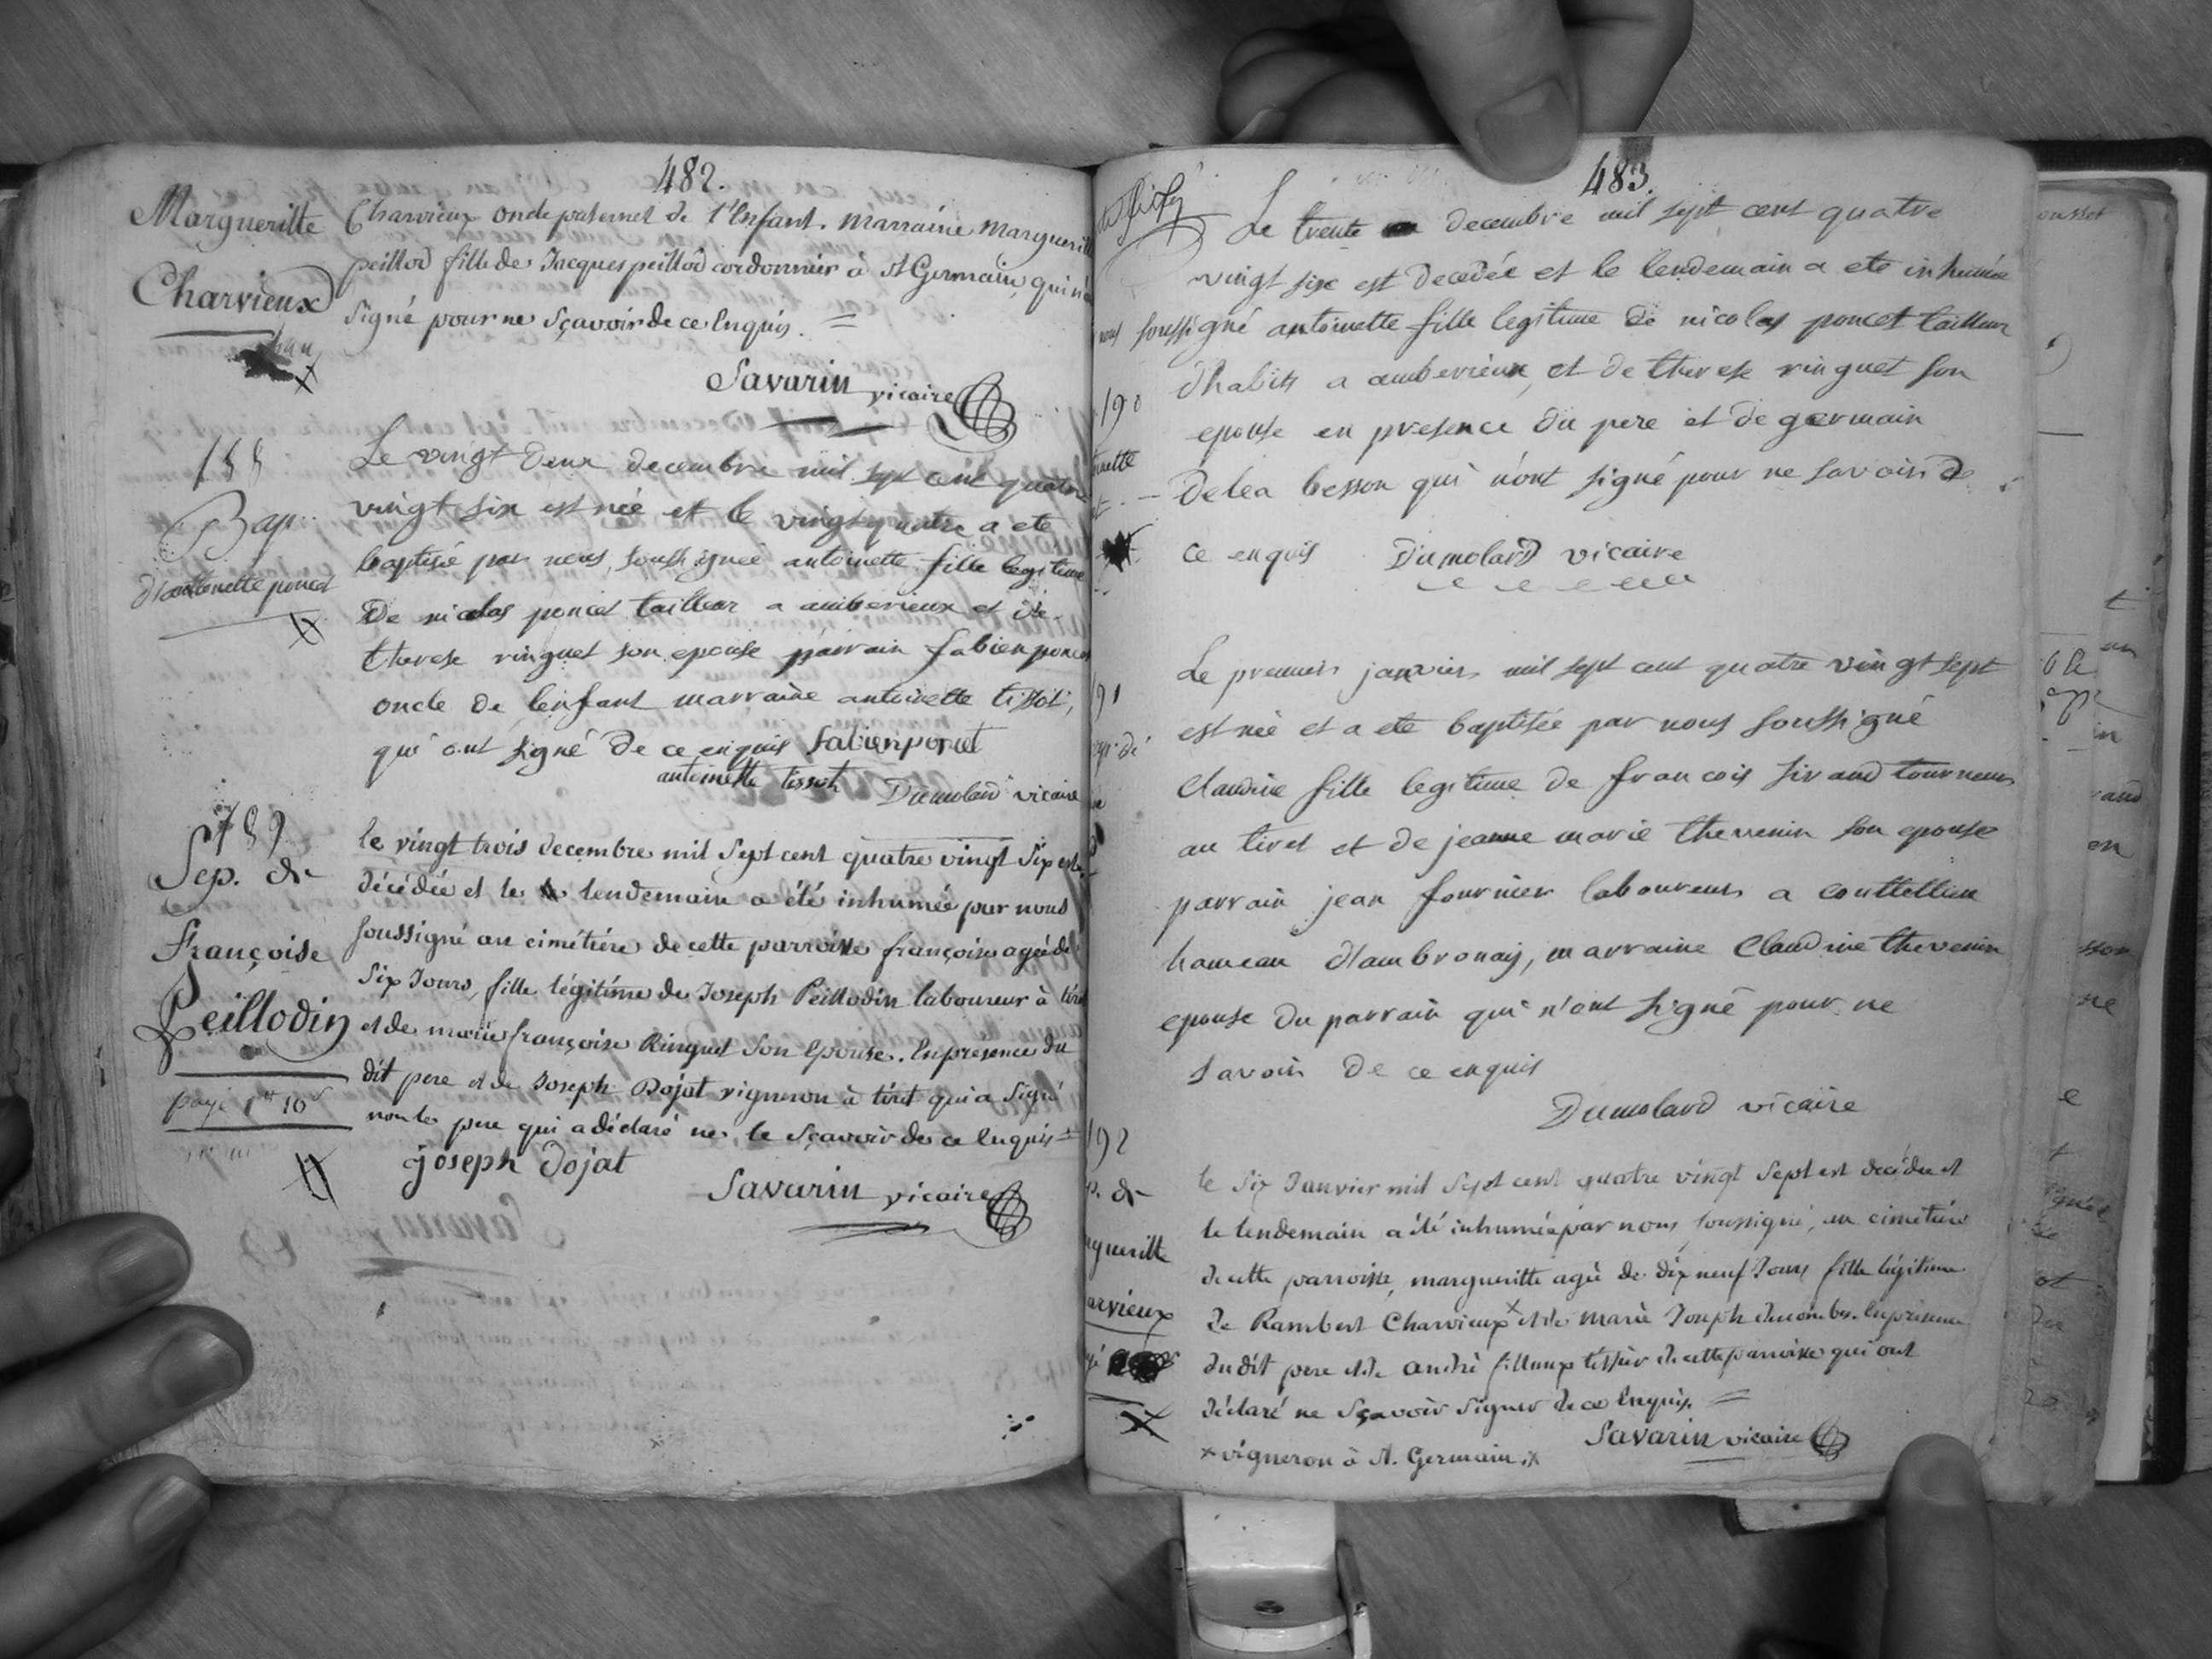 482.
Margueritte
Charvieux
Charvieux oncle paternel de l'Enfant. marraine marguerit
peillod fille de Jacques peillod cordonnier à St Germain, qui n'a
signé pour ne sçavoir de ce Enquis. =
Savarin vicaire
188
Bap.
d'antoinette poncet
Le vingt deux decembre mil sept cent quatre
vingt six est née et le vingt quatre a ete
baptisée par nous soussignée antoinette fille legitime
De nicolas poncet tailleur a amberieux et de
therese ringuet son epouse parrain fabien poncet
oncle de lenfant marraine antoinette tissot,
qui ont signé De ce enquis fabien poncet
antoinette tissot Dumolard vicaire
189
Sep. de
Françoise
Peillodin
payé 1# 10s
le vingt trois decembre mil sept cent quatre vingt Six est
décédée et le lendemain a été inhumée par nous
soussigné au cimétiére de cette parroisse françoise agée de
Six Jours, fille légitime de Joseph Peillodin laboureur à tiret
et de marie françoise Ringuet Son Epouse. En presence du
dit pere et de Joseph Dojat vigneron à tiret qui a Signé
non le pere qui a déclaré ne le Sçavoir de ce Enquis =
joseph dojat
Savarin vicaire
483.
Le trente decembre mil sept cent quatre
vingt six est decedée et le lendemain a ete inhumée
nous soussigné antoinette fille legitime de nicolas poncet tailleur
d'habits a amberieux, et de therese ringuet son
epouse en presence du pere et de germain
Delea besson qui n'ont signé pour ne savoir de
ce enquis Dumolard vicaire
190
nette
Le premier janvier mil sept cent quatre vingt sept
est née et a ete baptisée par nous soussigné
Claudine fille legitime de francois sirand tourneur
au tiret et de jeanne marie thevenin son epouse
parrain jean fournier laboureur a couttellieu
hameau d'ambronay, marraine Claudine thevenin
epouse du parrain qui n'ont signé pour ne
savoir De ce enquis
Dumolard vicaire
191
192
p. de
gueritte
arvieux
le six Janvier mil Sept cent quatre vingt Sept est decédée et
le lendemain a été inhumée par nous soussigné, au cimétiére
de cette parroisse, margueritte agée de dix neuf Jours fille légitime
de Rambert Charvieux x et de marie Joseph ducombes. En presence
du dit pere et de andré filluux tissier de cette parroisse qui ont
déclaré ne Sçavoir Signer de ce Enquis. =
x vigneron à St. Germain. x
Savarin vicaire